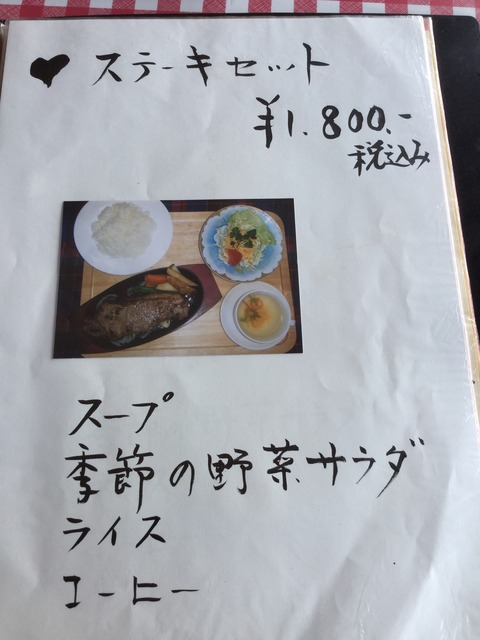 ♥ ステーキセット
¥1,800.-
税込み
スープ
季節の野菜サラダ
ライス
コーヒー